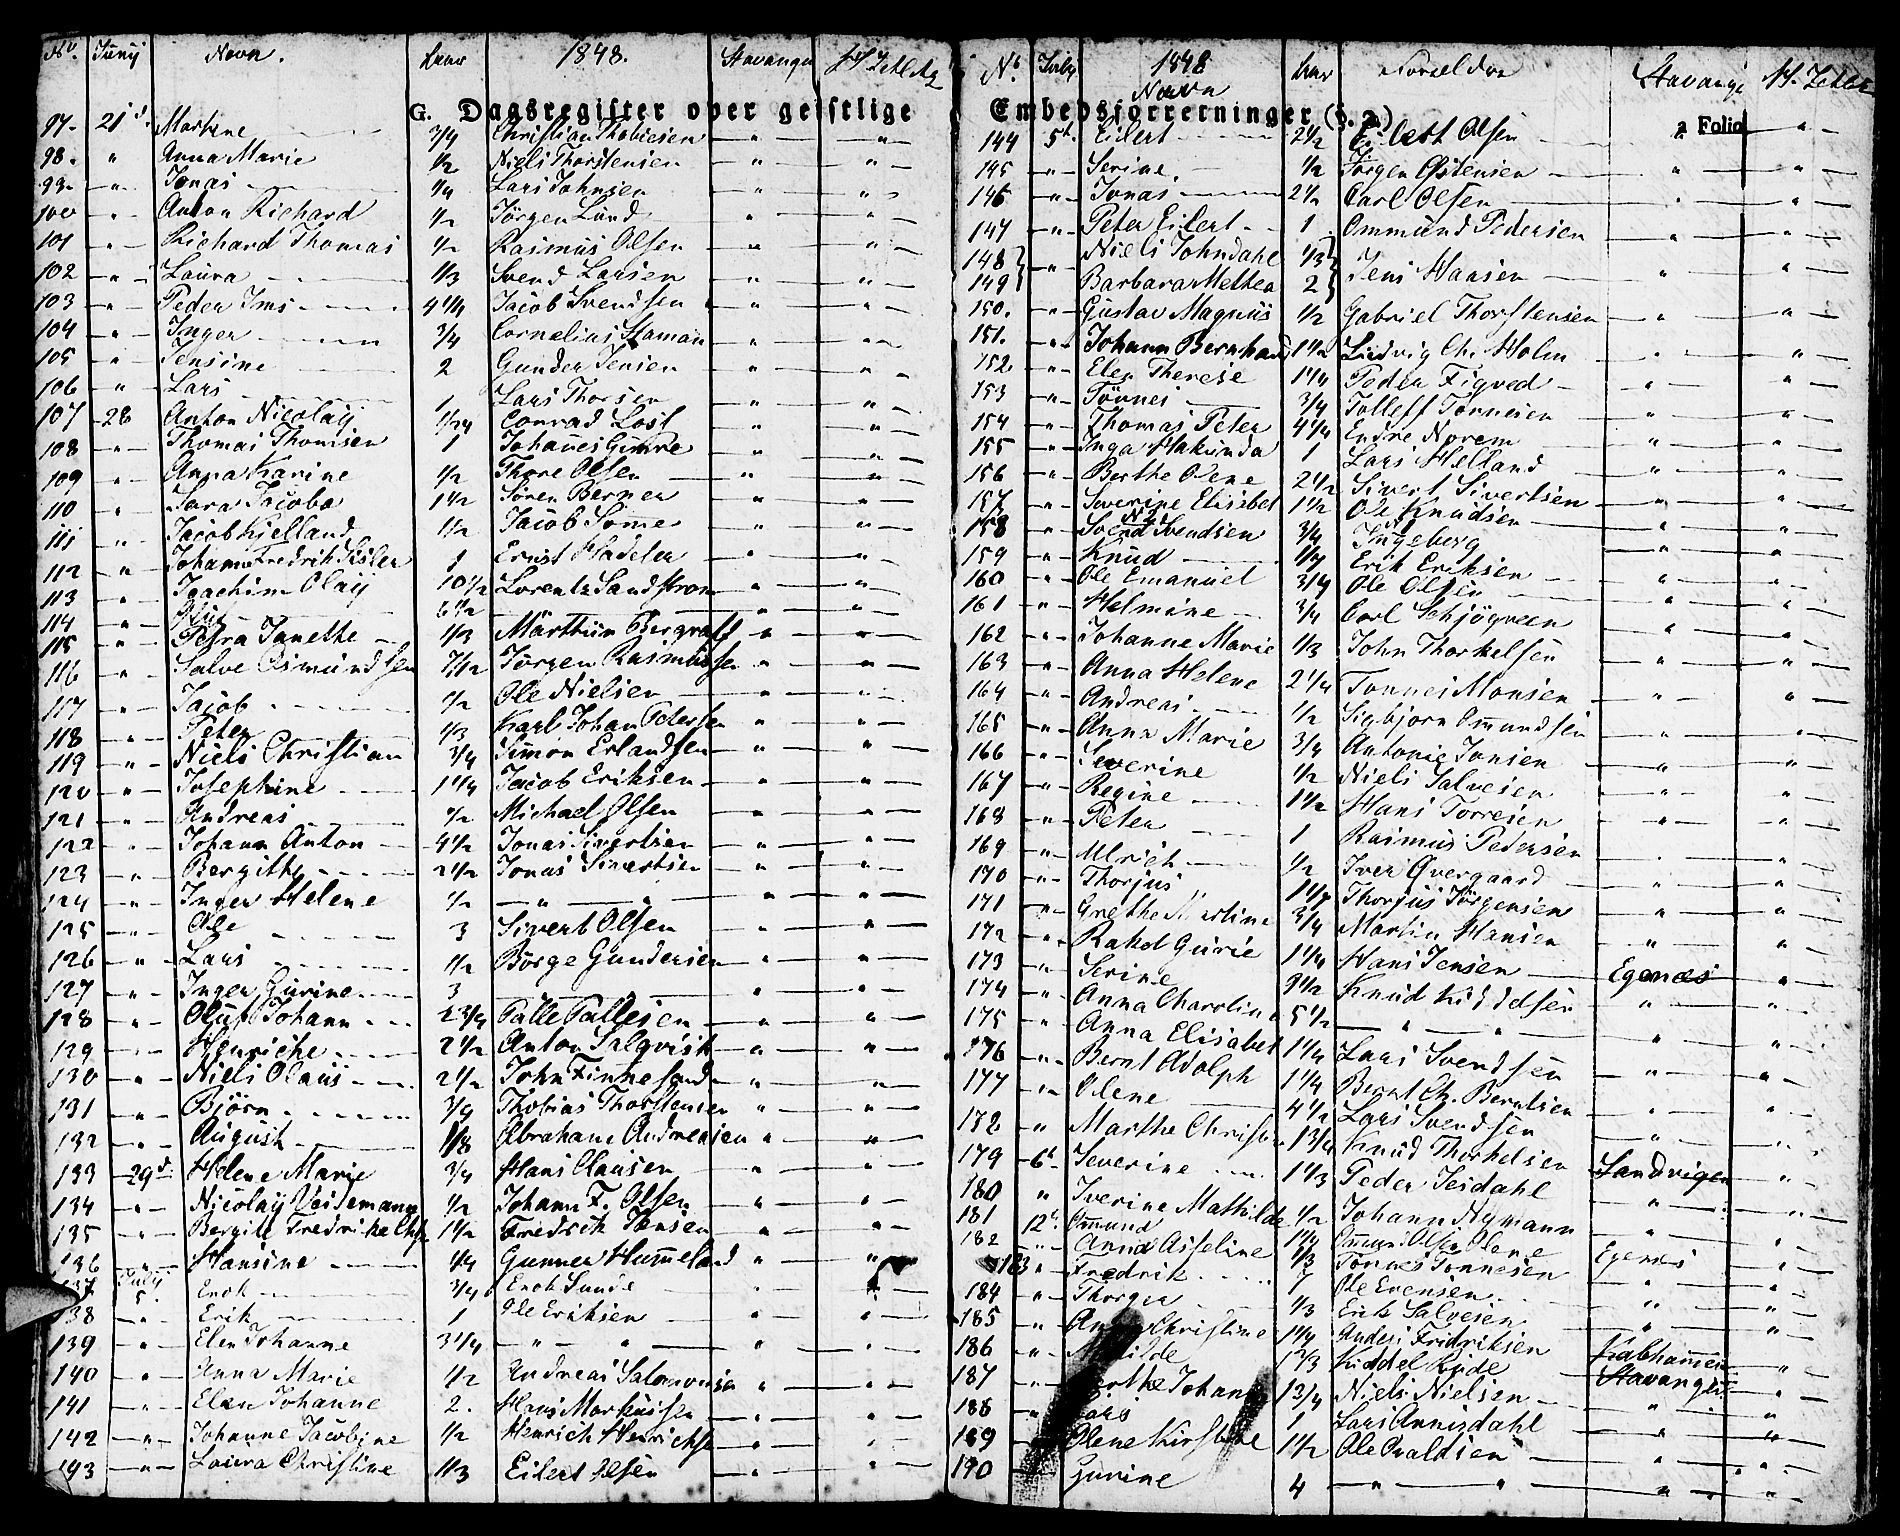 No. Junij Navn. Aar 1848. Stavanger
G. Dagsregister over geistlige
97. 21d. Martine 3/4 Christian Thobiesen " "
98. " Anna Marie 1/2 Niels Thorstensen " "
99. " Jonas 1/4 Lars Johnsen " "
100 " Anton Richard 1/2 Jörgen Lund " "
101 " Richard Thomas 1/2 Rasmus Olsen " "
102 " Laura 1/3 Svend Larsen " "
103 " Peder Ims 4 1/4 Jacob Svendsen " "
104 " Inger 3/4 Cornelius Staman " "
105 " Jensine 2 Gunder Jensen " "
106 " Lars 1 Lars Thorsen " "
107 28 Anton Nicolay Conrad Lost " "
108 " Thomas Thomsen 1 Johannes Gimre " "
109 " Anna Karine 1/2 Thore Olsen " "
110 " Sara Jacoba 1 1/2 Sören Berner " "
111 " Jacob Kjelland 1/2 Jacob Sömme " "
112 " Johann Fredrik 1 Ernst Hadeler " "
113 " Joachim Olaij 10 1/2 Lorentz Sandstrøm " "
114 " 6 1/2 " "
115 " Petra Janette 1/3 Martinn Bergraff " "
116 " Salve Osmundsen 7 1/2 Jørgen Rasmussen " "
117 " Jacob 1/2 Ole Nielsen " "
118 " Peter 1/3 Karl Johan Petersen " "
119 " Niels Christian 3/4 Simon Erlandsen " "
120 " Josephine 1 1/4 Jacob Eriksen " "
121 " Andreas 1/2 Michael Olsen " "
122 " Johann Anton 4 1/2 Jonas Sivertsen " "
123 " Bergithe 2 1/2 Jonas Sivertsen " "
124 " Inger Helene 1/2 " " " "
125 " Ole 3 Sivert Olsen " "
126 " Lars 1/2 Börge Gundersen " "
127 " Inger Gurine 3 " " "
128 " Oluf Johann 2 3/4 Palle Pallesen " "
129 " Henriche 2 1/2 Anton Salqvist " "
130 " Niels Olaus 2 1/2 John Finnesand " "
131 " Björn 3/4 Thobias Thorstensen " "
132 " August 1/8 Abraham Andreasen " "
133 29d. Helene Marie 3/4 Hans Clausen " "
134 " Nicolay Veidemann 1/2 Johann F. Olsen " "
135 " Bergite Fredrikke 1 1/2 Fredrik Jensen " "
136 " Hansine 1/4 Gunner Hummeland " "
137 Julij 5. Enok 3/4 Enok Sunde "
138 " Erik 1 Ole Eriksen " "
139 " Elen Johanne 3 1/4 " " " "
140 " Anna Marie 1/2 Andreas Salomonsen " "
141 " Elen Johanne 2. Hans Markussen " "
142 " Johanne Jacobine 1/2 Henrich Henrichsen " "
143 " Laura Christine 1/3 Eilert Olsen " "
No. Julij 1848 Navn Aar Forældre Stavanger
Embedsforretninger (§. 2) a Folio
144 5d. Eilert 2 1/2 Eilert Olsen " "
145 " Serine 1/2 Jörgen Östensen " "
146 " Jonas 2 1/2 Carl Olsen " "
147 " Peter Eilert 1 Ommund Pedersen " "
148 " Niels Johndahl 1/3 Jens Hansen " "
149 Barbara Methea 2
150. " Gustav Magnus 1/2 Gabriel Thorstensen " "
151. " Johann Bernhard 1 1/2 Ludvig Chr. Holm " "
152 " Elen Therese 1 1/4 Peder Figved " "
153 " Tönnes 3/4 Tolleff Tönnesen " "
154 " Thomas Peter 4 1/4 Endre Norem " "
155 " Inga Hakunda 1 Lars Helland " "
156 " Berthe Olene 2 1/2 Sivert Sivertsen " "
157 " Severine Elisabet 1 1/2 Ole Knudsen " "
158 " Svend Svendsen 3/4 Ingeberg " "
159 " Knud 1/4 Erik Eriksen " "
160 " Ole Emanuel 3/4 Ole Olsen " "
161 " Helmine 3/4 Carl Schjögreen " "
162 " Johanne Marie 1/3 John Thorkelsen " "
163 " Anna Helene 2 1/4 Tönnes Monsen " "
164 " Andreas 1/2 Sigbjørn Ommundsen " "
165 " Anna Marie 3/4 Antonie Jonsen " "
166 " Severine 1/2 Niels Salvesen " "
167 " Regine 1 1/2 Hans Torresen " "
168 " Peter 1 Rasmus Pedersen " "
169 " Ulrich 1/2 Iver Qvergaard " "
170 " Thorjus 1 1/4 Thorjus Jörgensen " "
171 " Grethe Martine 3/4 Martin Hansen " "
172 " Rakel Gurie 1 1/4 Hans Jensen Egenæs "
173 " Serine 9 1/2 Knud Kiddelsen " "
174 " Anna Charoline 5 1/2 " " " "
175 " Anna Elisabet 1 1/4 Lars Svendsen " "
176 " Bernt Adolph 1 1/4 Bernt Ch. Berntsen " "
177 " Olene 4 1/2 Lars Svendsen "
178 " Marthe Christine 1 3/4 Knud Thorkelsen Sandvigen "
179 6d. Severine 1 1/3 Peder Seidahl " "
180 " Iverine Mathilde 1/2 Johann Nymann " "
181 12d. Ommund 1/4 Ommund Olsen Olene Egenæs "
182 " Anna Asseline 1/3 Tönnes Tönnesen " "
183 " Fredrik 7 Ole Evensen " "
184 " Thorger 1/3 Erik Salvesen " "
185 " Anna Christine 1 1/4 Anders Fredriksen "
186 " Matilde 1 2/3 Kiddel Eide Stavanger "
187 " Berthe Johanne 1 3/4 Niels Nielsen " "
188 " Lars 1 Lars Annisdahl " "
189 Olene Kirstine 1 1/2 Ole Osaldsen " "
190 Gurine 4 " " " "